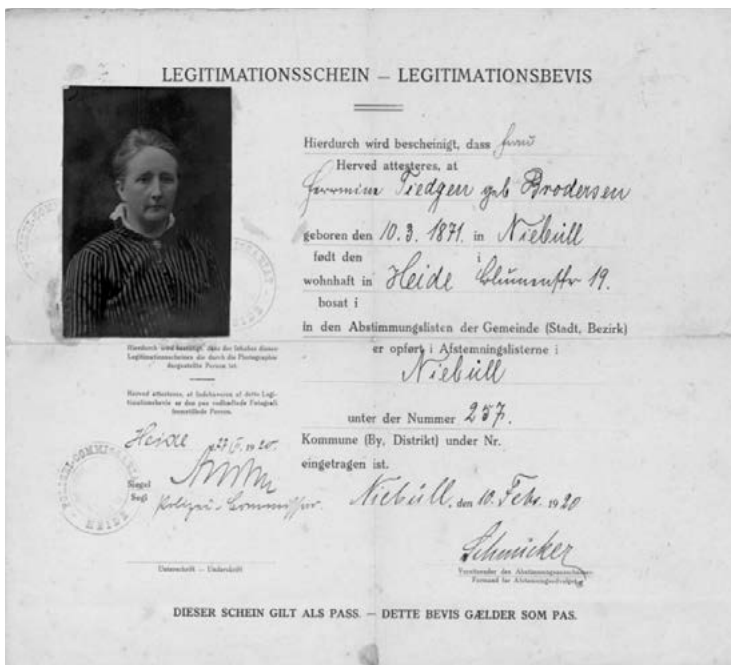 LEGITIMATIONSSCHEIN — LEGITIMATIONSBEVIS
Hierdurch wird bescheinigt, dass Frau
Herved attesteres, at
Herrmine Tiedgen geb Brodersen
geboren den 10.3.1871. in Niebüll
født den i
wohnhaft in Heide Blumenstr 19.
bosat i
in den Abstimmungslisten der Gemeinde (Stadt, Bezirk)
er opført i Afstemningslisterne i
Niebüll
unter der Nummer 257.
Kommune (By, Distrikt) under Nr.
eingetragen ist.
Niebüll, den 10. Febr. 1920
Schmicker
Vorsitzender des Abstimmungsausschusses
Formand for Afstemningsudvalget
Hierdurch wird bestätigt, dass der Inhaber dieses
Legitimationsscheines die durch die Photographie
dargestellte Person ist.
Herved attesteres, at Indehaveren af dette Legi-
timationsbevis er den paa vedhæftede Fotografi
fremstillede Person.
Heide 1920
Siegel
Segl
Polizei-Commissar.
Unterschrift — Underskrift
POLIZEI-COMMISSARIAT
HEIDE
DIESER SCHEIN GILT ALS PASS. — DETTE BEVIS GÆLDER SOM PAS.